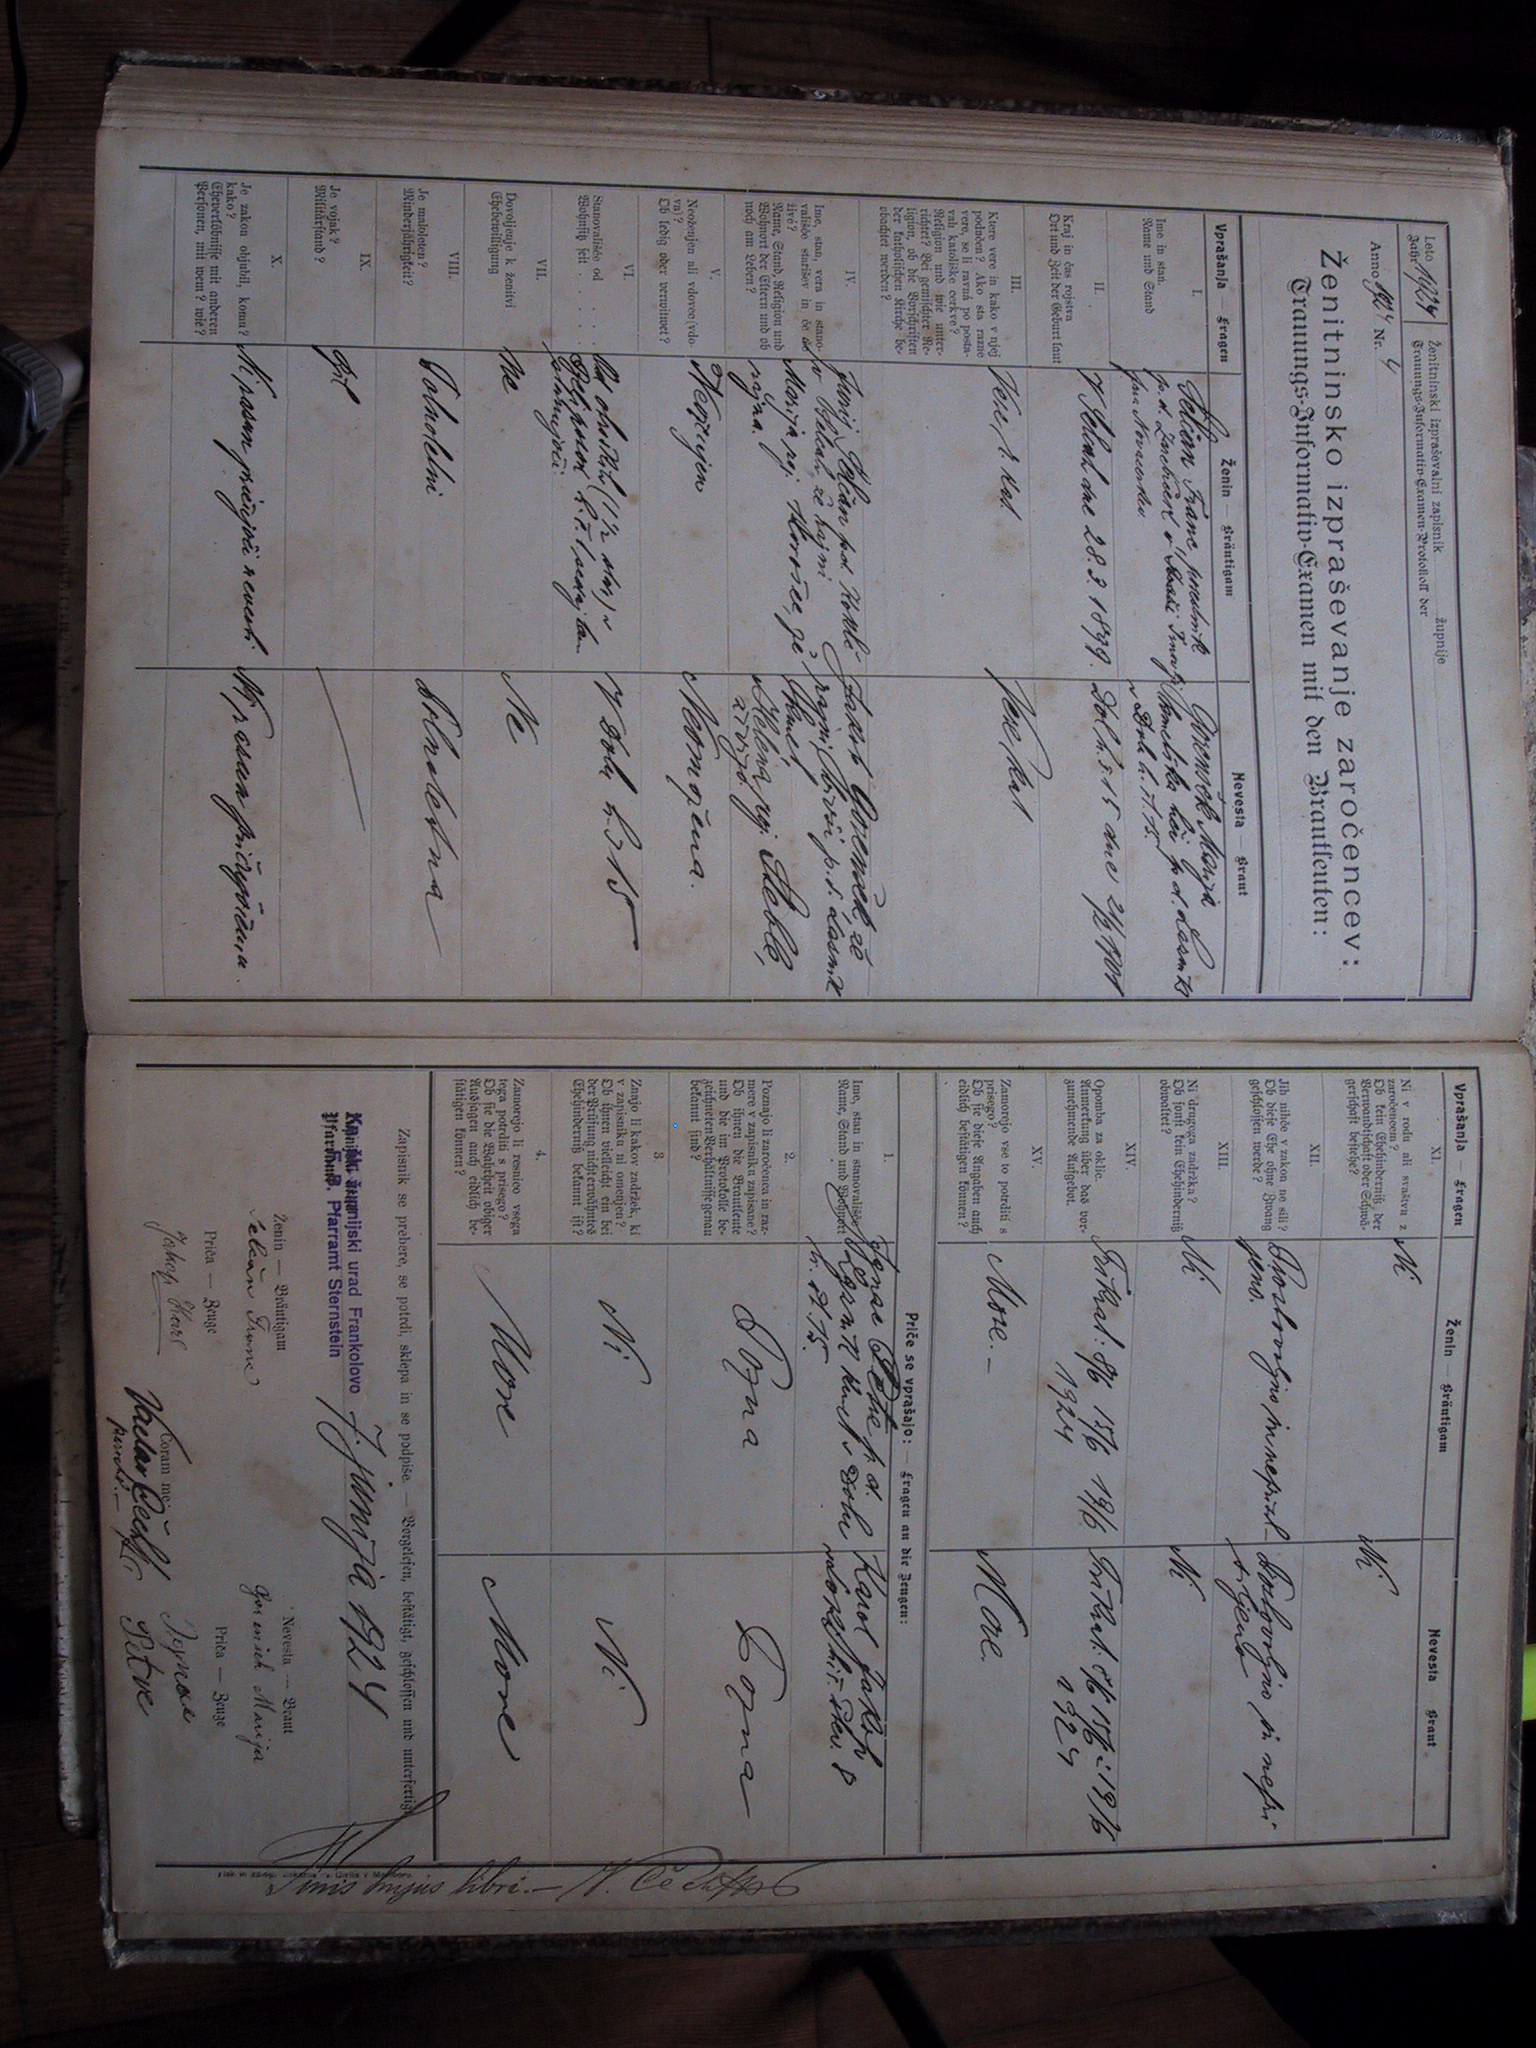 Leto
Jahr 1924
Ženitninski izpraševalni zapisnik župnije
Trauungs-Informativ-Examen-Protokoll der
Anno 1924 Nr. 4
Ženitninsko izpraševanje zaročencev:
Trauungs-Informativ-Examen mit den Brautleuten:
Vprašanja — Fragen
Ženin — Bräutigam
Nevesta — Braut
I.
Ime in stan.
Name und Stand
Selčan Franc posestnik
p. d. v Trnovlji
fara Novacerkev
Gorenšek Marija
kmetska hči p. d. Laznik
v Dolu h. št. 15.
II.
Kraj in čas rojstva
Ort und Zeit der Geburt laut
V Selcah dne 28. 3. 1899.
Dol h. š 15 dne 21/2 1901
III.
Ktere vere in kako v njej
podučen? Ako sta razne
vere, se li ravná po posta-
vah katoliške cerkve?
Religion und wie unter-
richtet? Bei gemischter Re-
ligion, ob die Vorschriften
der katholischen Kirche be-
obachtet werden?
Vere r. kat.
Vere kat
IV.
Ime, stan, vera in stano-
vališče starišev in če še
živé?
Name, Stand, Religion und
Wohnort der Eltern und ob
noch am Leben?
Jurij Selčan p. d. Koklč
v Selcah, že rajni
Marija roj. Korošec, že
rajna.
Jakob Gorenšek, že
rajni, bivši p. d. Laznik
kmet,
Helena roj. Steble,
živijo.
V.
Neoženjen ali vdovec (vdo-
va)?
Ob ledig oder verwitwet?
Neoženjen
Neomožena.
VI.
Stanovališče od . . .
Wohnsitz seit . . . . .
Od otroških (1 1/2 star) v
Beli potok h. č. 1 sedaj tam
stanujoči
V Dolu h. š 15
VII.
Dovoljenje k ženitvi
Ehebewilligung
Ne
Ne
VIII.
Je maloleten?
Minderjährigkeit?
Polnoletni
Polnoletna
IX.
Je vojak?
Militärstand?
Bil
X.
Je zakon objubil, komu?
kako?
Eheverlöbnisse mit anderen
Personen, mit wem? wie?
Ni razun pričujoči nevesti
Ni razun pričujočemu.
Vprašanja — Fragen
Ženin — Bräutigam
Nevesta — Braut
XI.
Ni v rodu ali svaštvu z
zaročencem?
Ob kein Ehehinderniß der
Verwandtschaft oder Schwä-
gerschaft bestehe?
Ni
Ni
XII.
Jih nihče v zakon ne sili?
Ob diese Ehe ohne Zwang
geschlossen werde?
Prostovoljno in neprisil-
jeno.
Postovoljno in nepri
siljeno
XIII.
Ni drugega zadržka?
Ob sonst kein Ehehinderniß
obwaltet?
Ni
Ni
XIV.
Opomba za oklic.
Anmerkung über das vor-
zunehmende Aufgebot.
Trikrat: 8/6 15/6 19/6
1924
Trikrat: 8/6 15/6 i 19/6
1924
XV.
Zamorejo vse to potrditi s
prisego?
Ob sie diese Angaben auch
eidlich bestätigen können?
More. —
More.
Priče se vprašajo: — Fragen an die Zeugen:
1.
Ime, stan in stanovališče
Name, Stand und Wohnort
Ignac Petre p. d.
Laznik kmet v Dolu
h. št. 15.
Karol Jakop
v Loki hiš. štev. 8
2.
Poznajo li zaročenca in raz-
mere v zapisniku zapisane?
Ob ihnen die Brautleute
und die im Protokolle be-
zeichneten Verhältnisse genau
bekannt sind?
Pozna
Pozna
3.
Znajo li kakov zadržek, ki
v zapisniku ni omenjen?
Ob ihnen vielleicht ein bei
der Prüfung nicht erwähntes
Ehehinderniß bekannt ist?
Ni
Ni
4.
Zamorejo li resnico vsega
tega potrditi s prisego?
Ob sie die Wahrheit obiger
Aussagen auch eidlich be-
stätigen können?
More
More
Zapisnik se prebere, se potrdi, sklepa in se podpiše. — Vorgelesen, bestätigt, geschlossen und unterfertigt.
Kn. šk. župnijski urad Frankolovo
F. B. Pfarramt Sternstein
7. junija 1924
Ženin — Bräutigam
Selčan Franc
Nevesta — Braut
Gorenšek Marija
Priča — Zeuge
Jakop Karl
Priča — Zeuge
Ignac
Petre
Coram me:
Vaclav Čech
parochus.